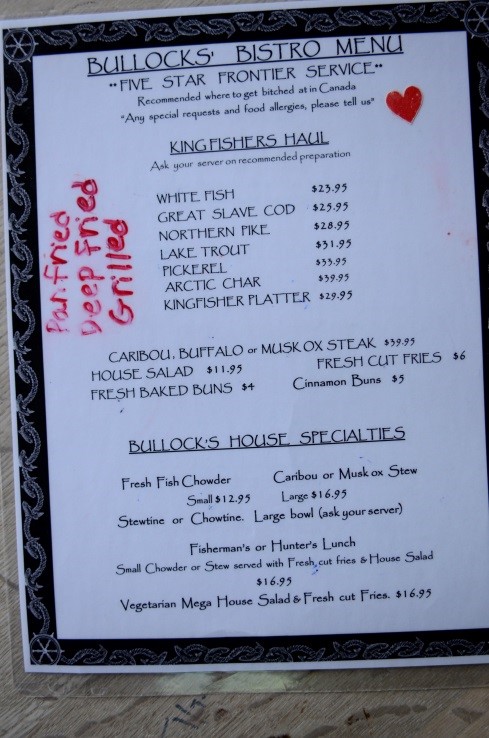 BULLOCKS' BISTRO MENU
**FIVE STAR FRONTIER SERVICE**
Recommended where to get bitched at in Canada
"Any special requests and food allergies, please tell us"
KINGFISHERS HAUL
Ask your server on recommended preparation
Pan fried
Deep Fried
Grilled
WHITE FISH $23.95
GREAT SLAVE COD $25.95
NORTHERN PIKE $28.95
LAKE TROUT $31.95
PICKEREL $33.95
ARCTIC CHAR $39.95
KINGFISHER PLATTER $29.95
CARIBOU, BUFFALO or MUSKOX STEAK $39.95
HOUSE SALAD $11.95 FRESH CUT FRIES $6
FRESH BAKED BUNS $4 Cinnamon Buns $5
BULLOCK'S HOUSE SPECIALTIES
Fresh Fish Chowder Caribou or Musk ox Stew
Small $12.95 Large $16.95
Stewtine or Chowtine. Large bowl (ask your server)
Fisherman's or Hunter's Lunch
Small Chowder or Stew served with Fresh cut fries & House Salad
$16.95
Vegetarian Mega House Salad & Fresh cut Fries. $16.95